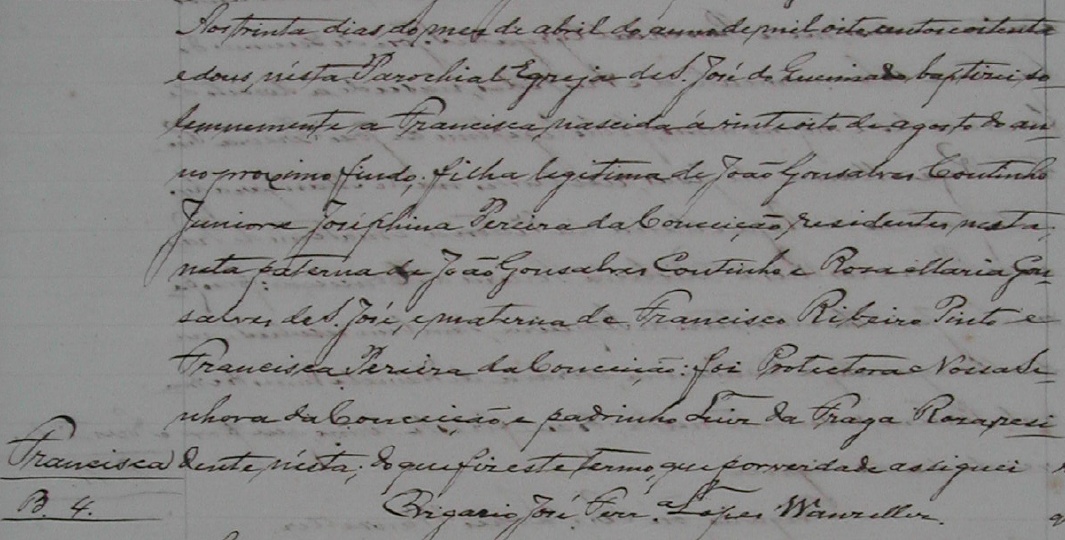 Aos trinta dias do mez de abril do anno de mil oito centos e oitenta
e dous, nésta Parochial Egreja de S. José do Queimado baptizei so
lemnemente a Francisca, nascida á vinte oito de agosto do an_
no proximo findo, filha legitima de João Gonsalves Coutinho
Junior e Josephina Pereira da Conceição, residentes nesta;
neta paterna de João Gonsalves Coutinho e Rosa Maria Gon_
salves de S. José, e materna de Francisco Ribeiro Pinto e
Francisca Pereira da Conceição: foi Protectora e Nossa Se_
nhora da Conceição e padrinho Luiz da Fraga Roza, resi_
Francisca dente, nésta; do que fiz este termo, que por verdade assignei
B. 4. Vigario José Ferr.ª Lopes Wanzeller.